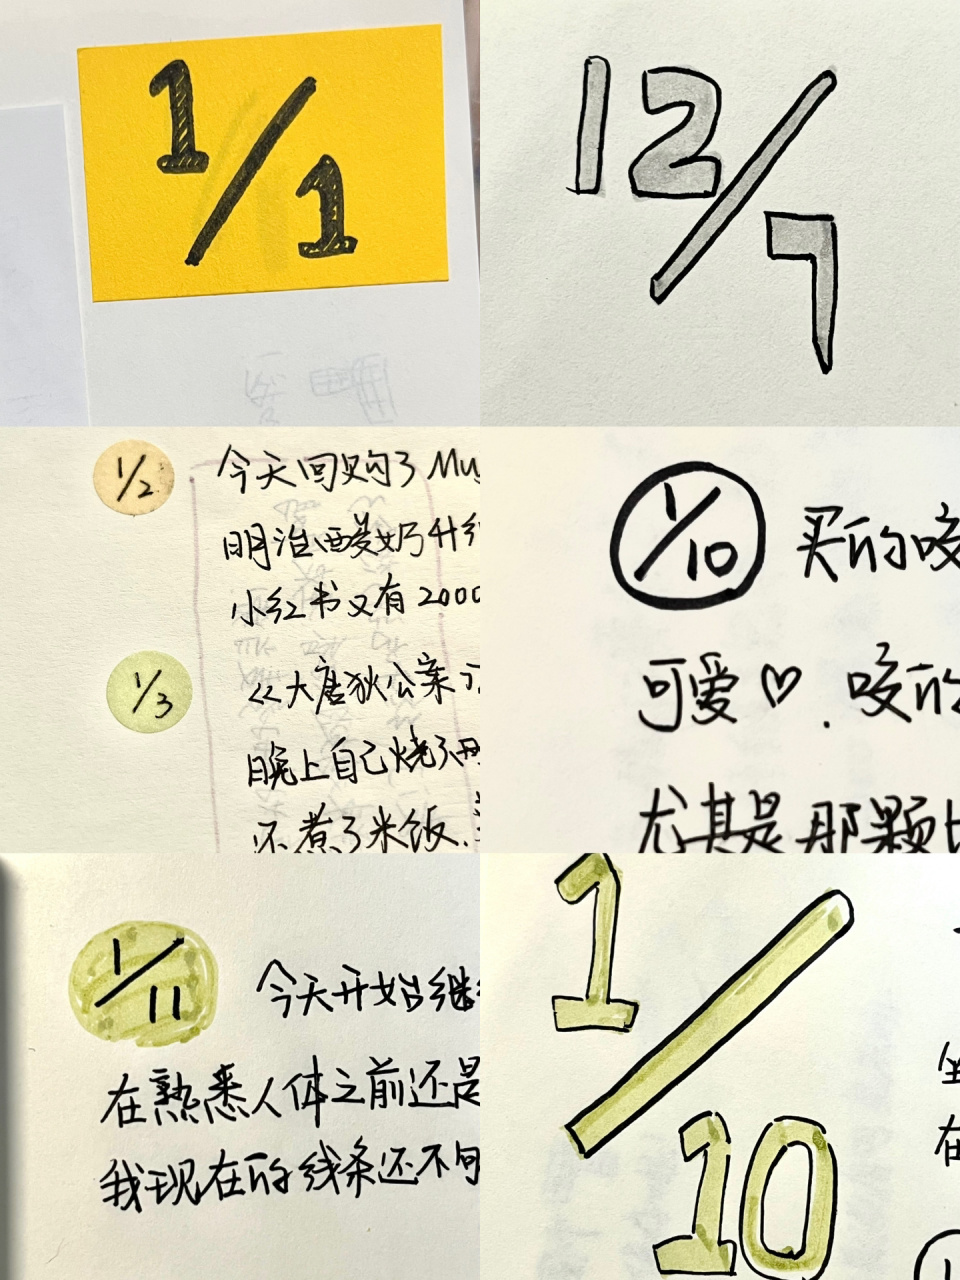 1/1
12/7
1/2 今天回购了Mu
明治酸奶
小红书又有2000
1/3 《大唐狄公案
晚上自己烧
还煮了米饭.
1/10 买的咬
可爱♡. 咬的
尤其是那颗
1/11 今天开始继
在熟悉人体之前还是
我现在的线条还不
1/10
在